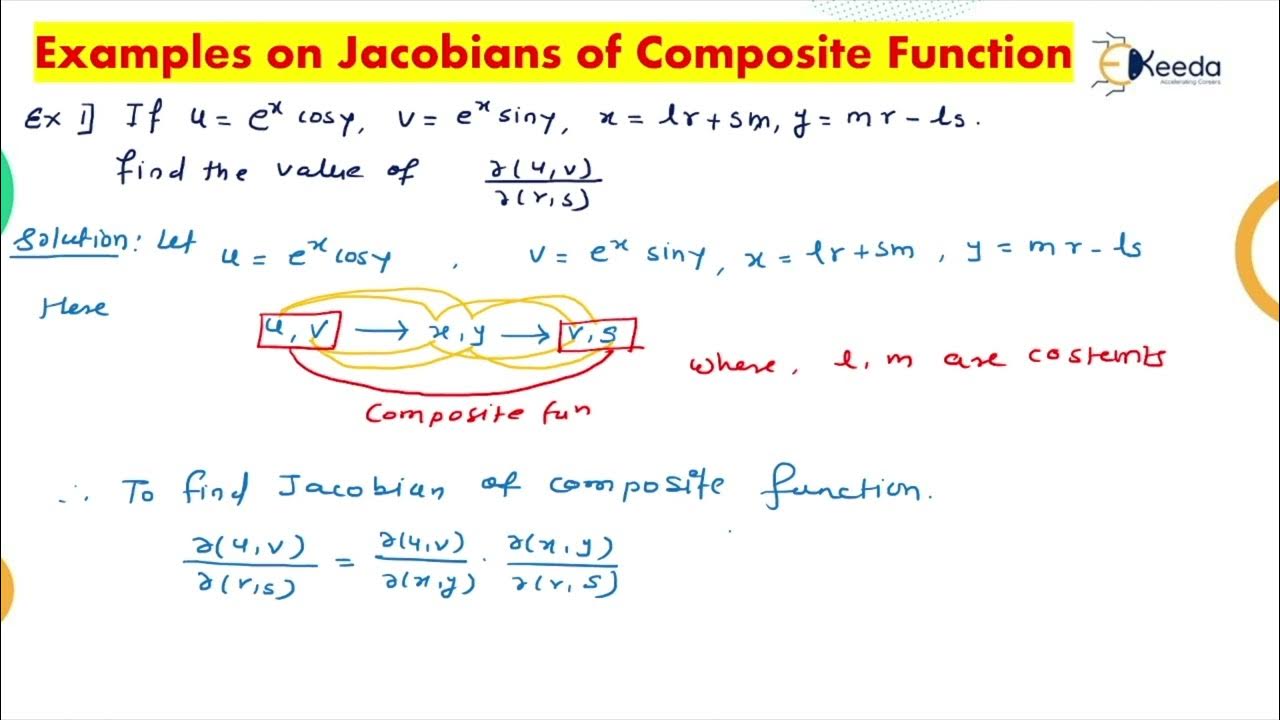 Examples on Jacobians of Composite Function
EKeeda
Accelerating Careers
Ex 1] If u = eˣ cosy, v = eˣ siny, x = lr + sm, y = mr - ls.
find the value of ∂(u,v)/∂(r,s)
Solution: Let u = eˣ cosy , v = eˣ siny, x = lr + sm , y = mr - ls
Here
u, v → x, y → r, s
where, l, m are costemts
Composite fun
∴ To find Jacobian of composite function.
∂(u,v)/∂(r,s) = ∂(u,v)/∂(x,y) · ∂(x,y)/∂(r,s)